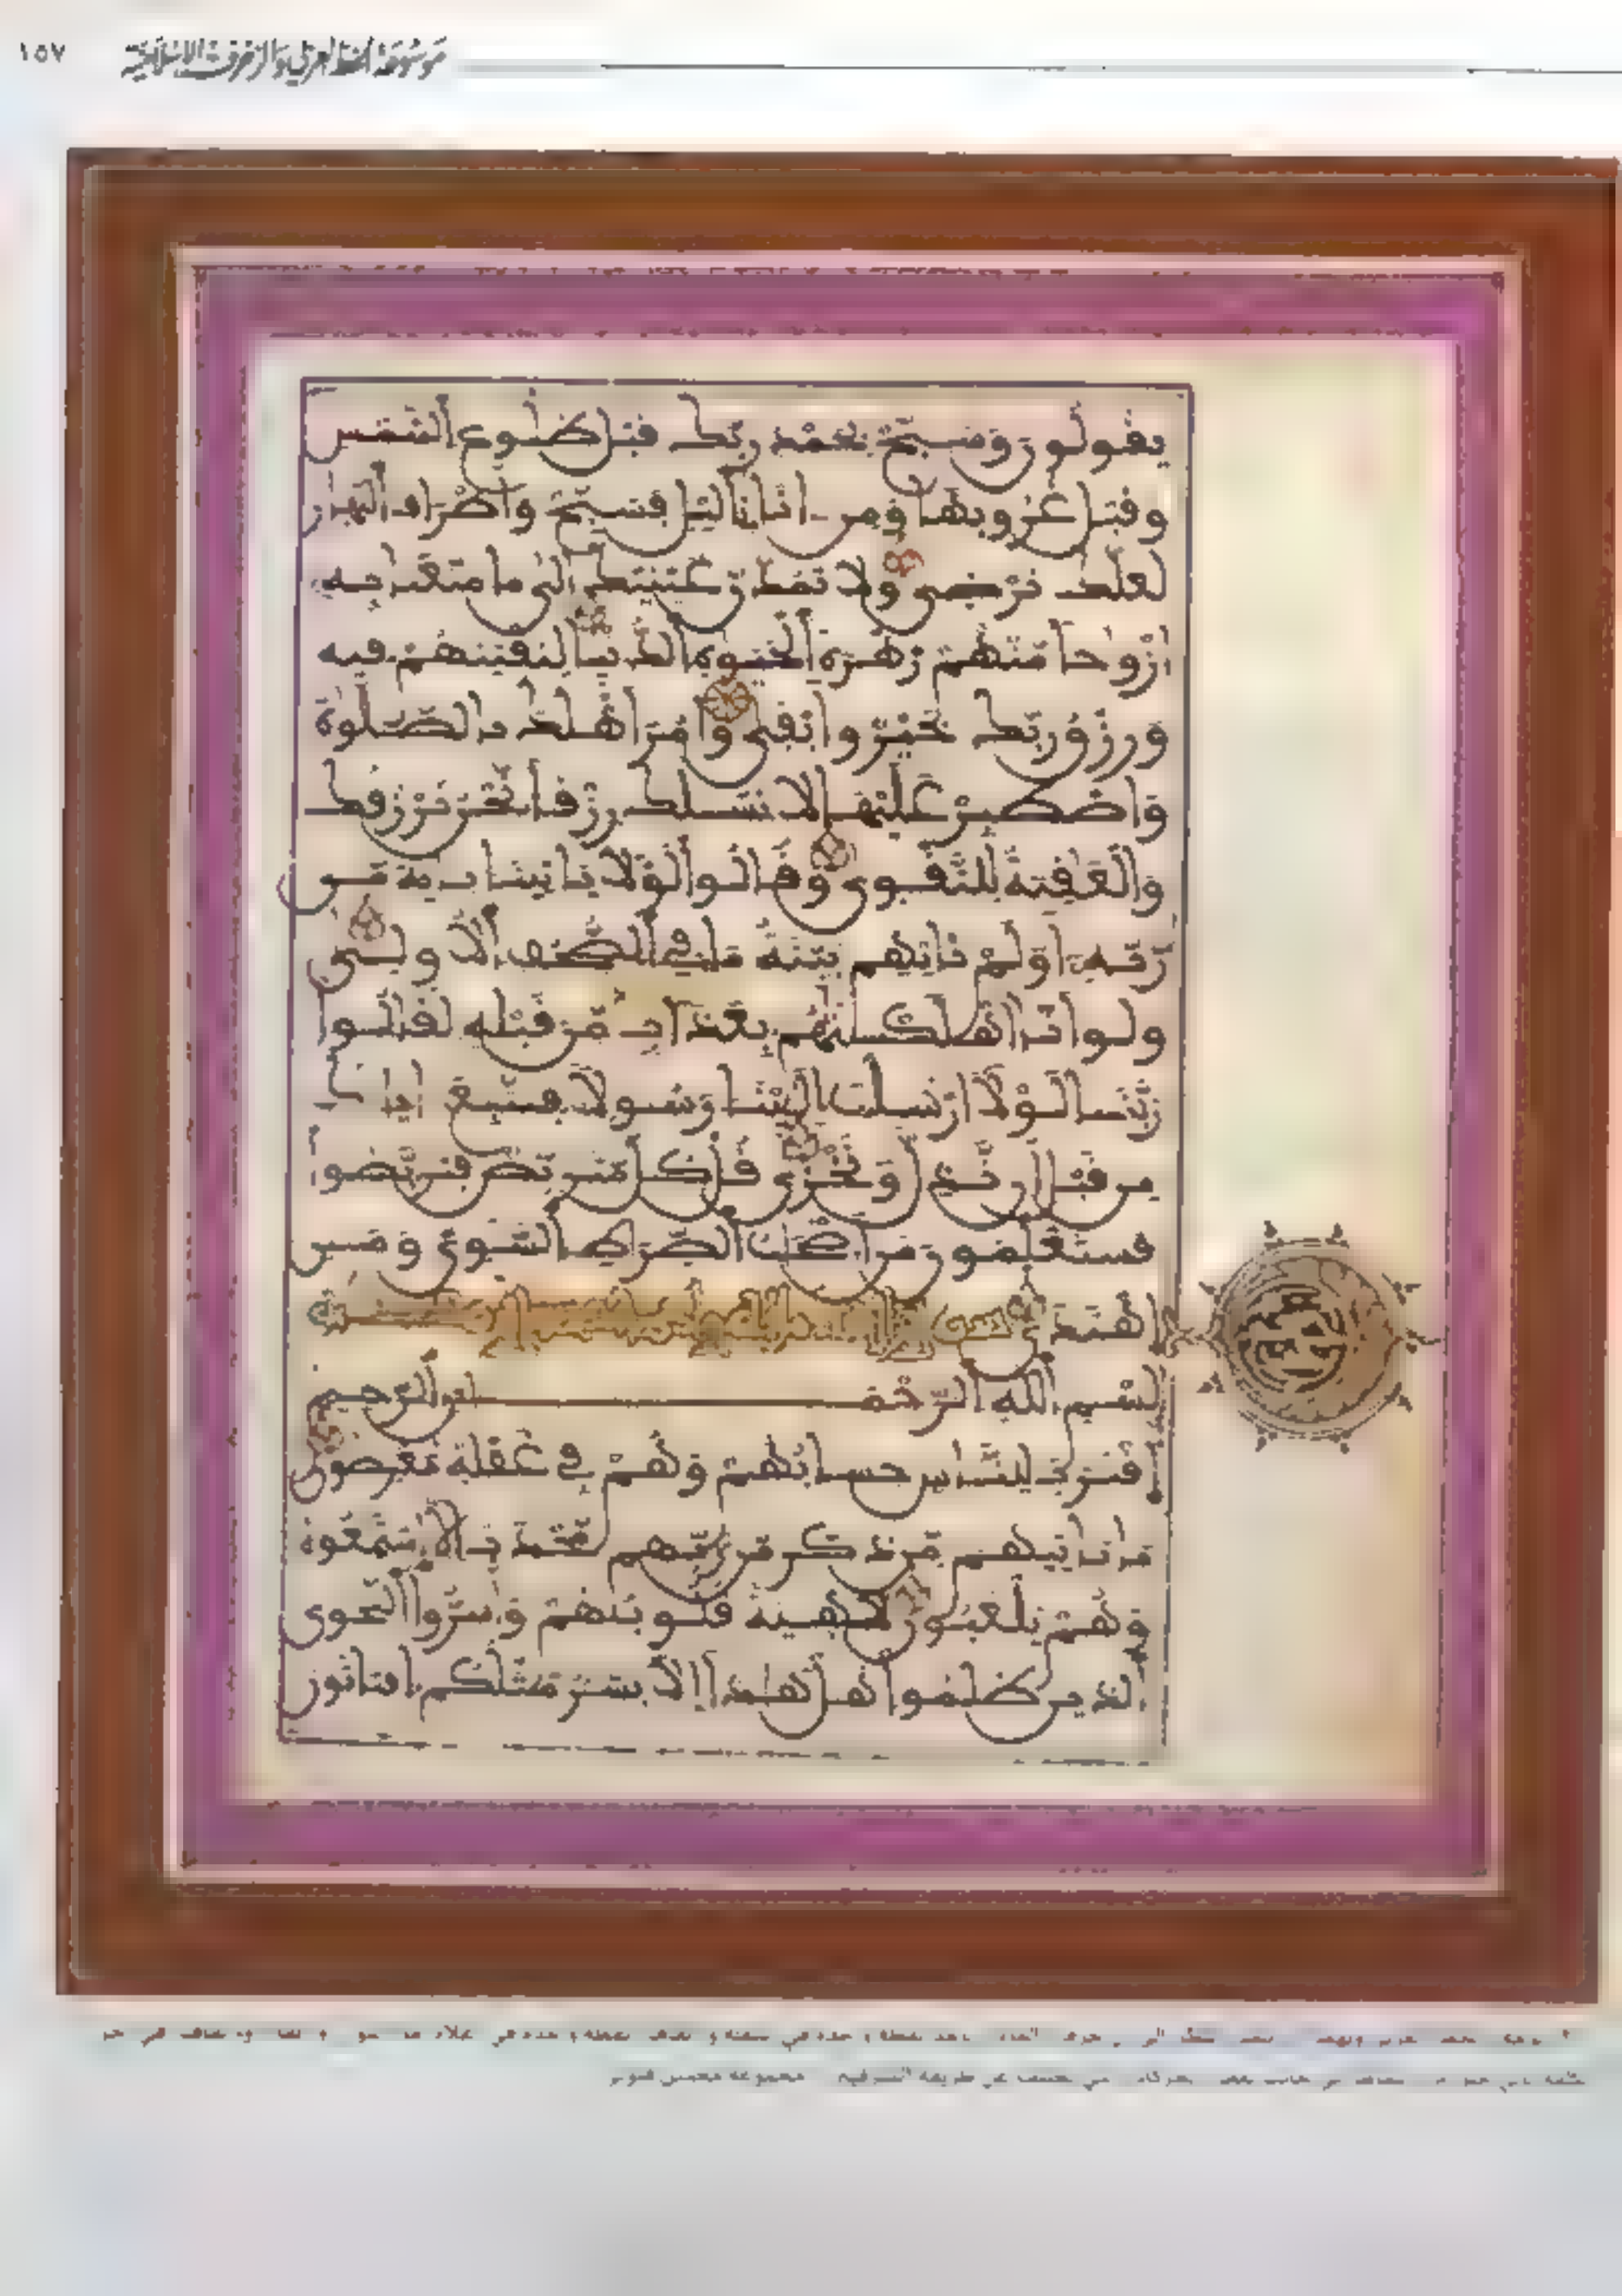 ١٥٧ موسوعة الخط العربي والزخرفة الإسلامية
يقولون وسبح بحمد ربك قبل طلوع الشمس
وقبل غروبها ومن اناءي اليل فسبح واطراف النهار
لعلك ترضى ولا تمدن عينيك الى ما متعنا به
ازوجا منهم زهرة الحيوة الدنيا لنفتنهم فيه
ورزق ربك خير وابقى وامر اهلك بالصلوة
واصطبر عليها لا نسلك رزقا نحن نرزقك
والعقبة للتقوى وقالوا لولا ياتينا بئاية من
ربه اولم تاتهم بينة ما في الصحف الاولى
ولو انا اهلكنهم بعذاب من قبله لقالوا
ربنا لولا ارسلت الينا رسولا فنتبع ءايتك
من قبل ان نذل ونخزى قل كل متربص فتربصوا
فستعلمون من اصحب الصراط السوي ومن
اهتدى
بسم الله الرحمن الرحيم
اقترب للناس حسابهم وهم في غفلة معرضون
ما ياتيهم من ذكر من ربهم محدث الا استمعوه
وهم يلعبون لاهية قلوبهم واسروا النجوى
الذين ظلموا هل هذا الا بشر مثلكم افتاتون